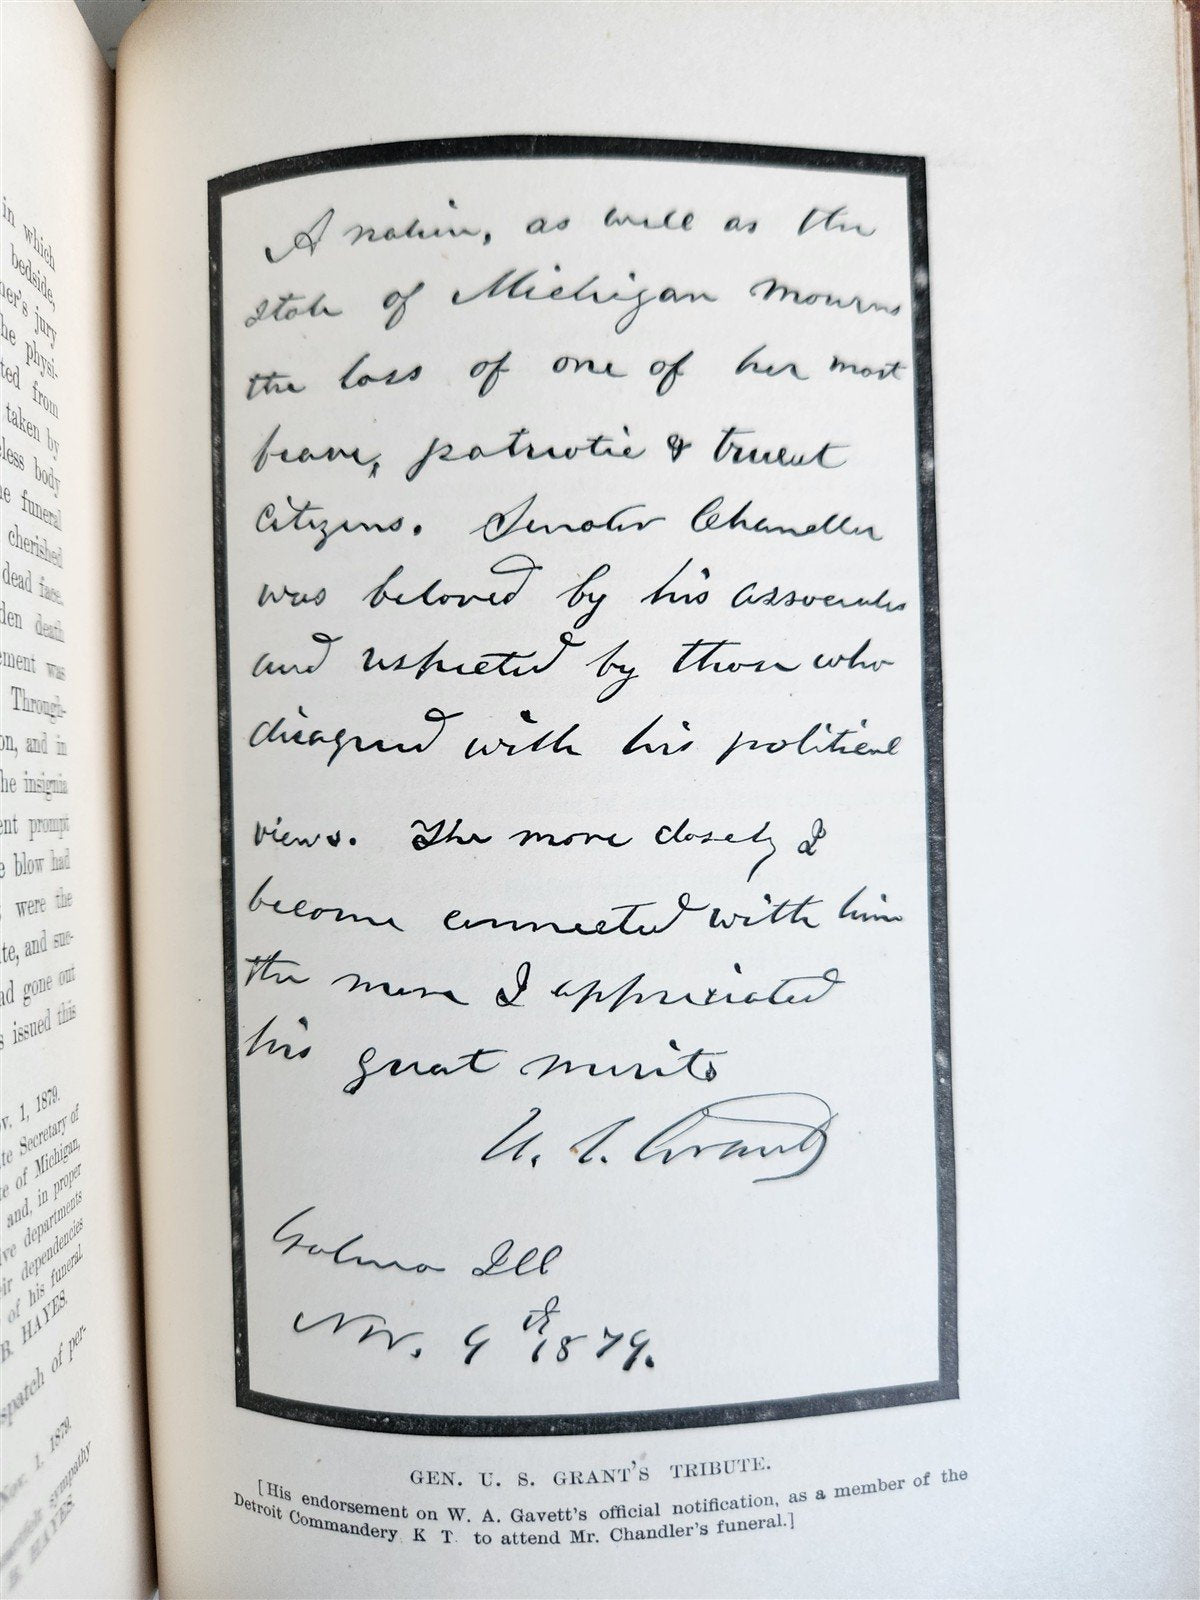 in which
bedside,
ner's jury
he physi-
ted from
taken by
eless body
he funeral
cherished
dead face.
den death
ement was
Through-
on, and in
he insignia
ent prompt
e blow had
were the
te, and suc-
ad gone out
s issued this
v. 1, 1879.
te Secretary of
te of Michigan,
and, in proper
ive departments
eir dependencies
of his funeral.
B. HAYES.
spatch of per-
Nov. 1, 1879.
sympathy
B. HAYES.
A nation, as well as the
state of Michigan mourns
the loss of one of her most
brave, patriotic & truest
citizens. Senator Chandler
was beloved by his associates
and respected by those who
disagreed with his political
views. The more closely I
became connected with him
the more I appreciated
his great merits
U. S. Grant
Galena Ill
Nov. 9th 1879.
GEN. U. S. GRANT'S TRIBUTE.
[His endorsement on W. A. Gavett's official notification, as a member of the
Detroit Commandery K T. to attend Mr. Chandler's funeral.]